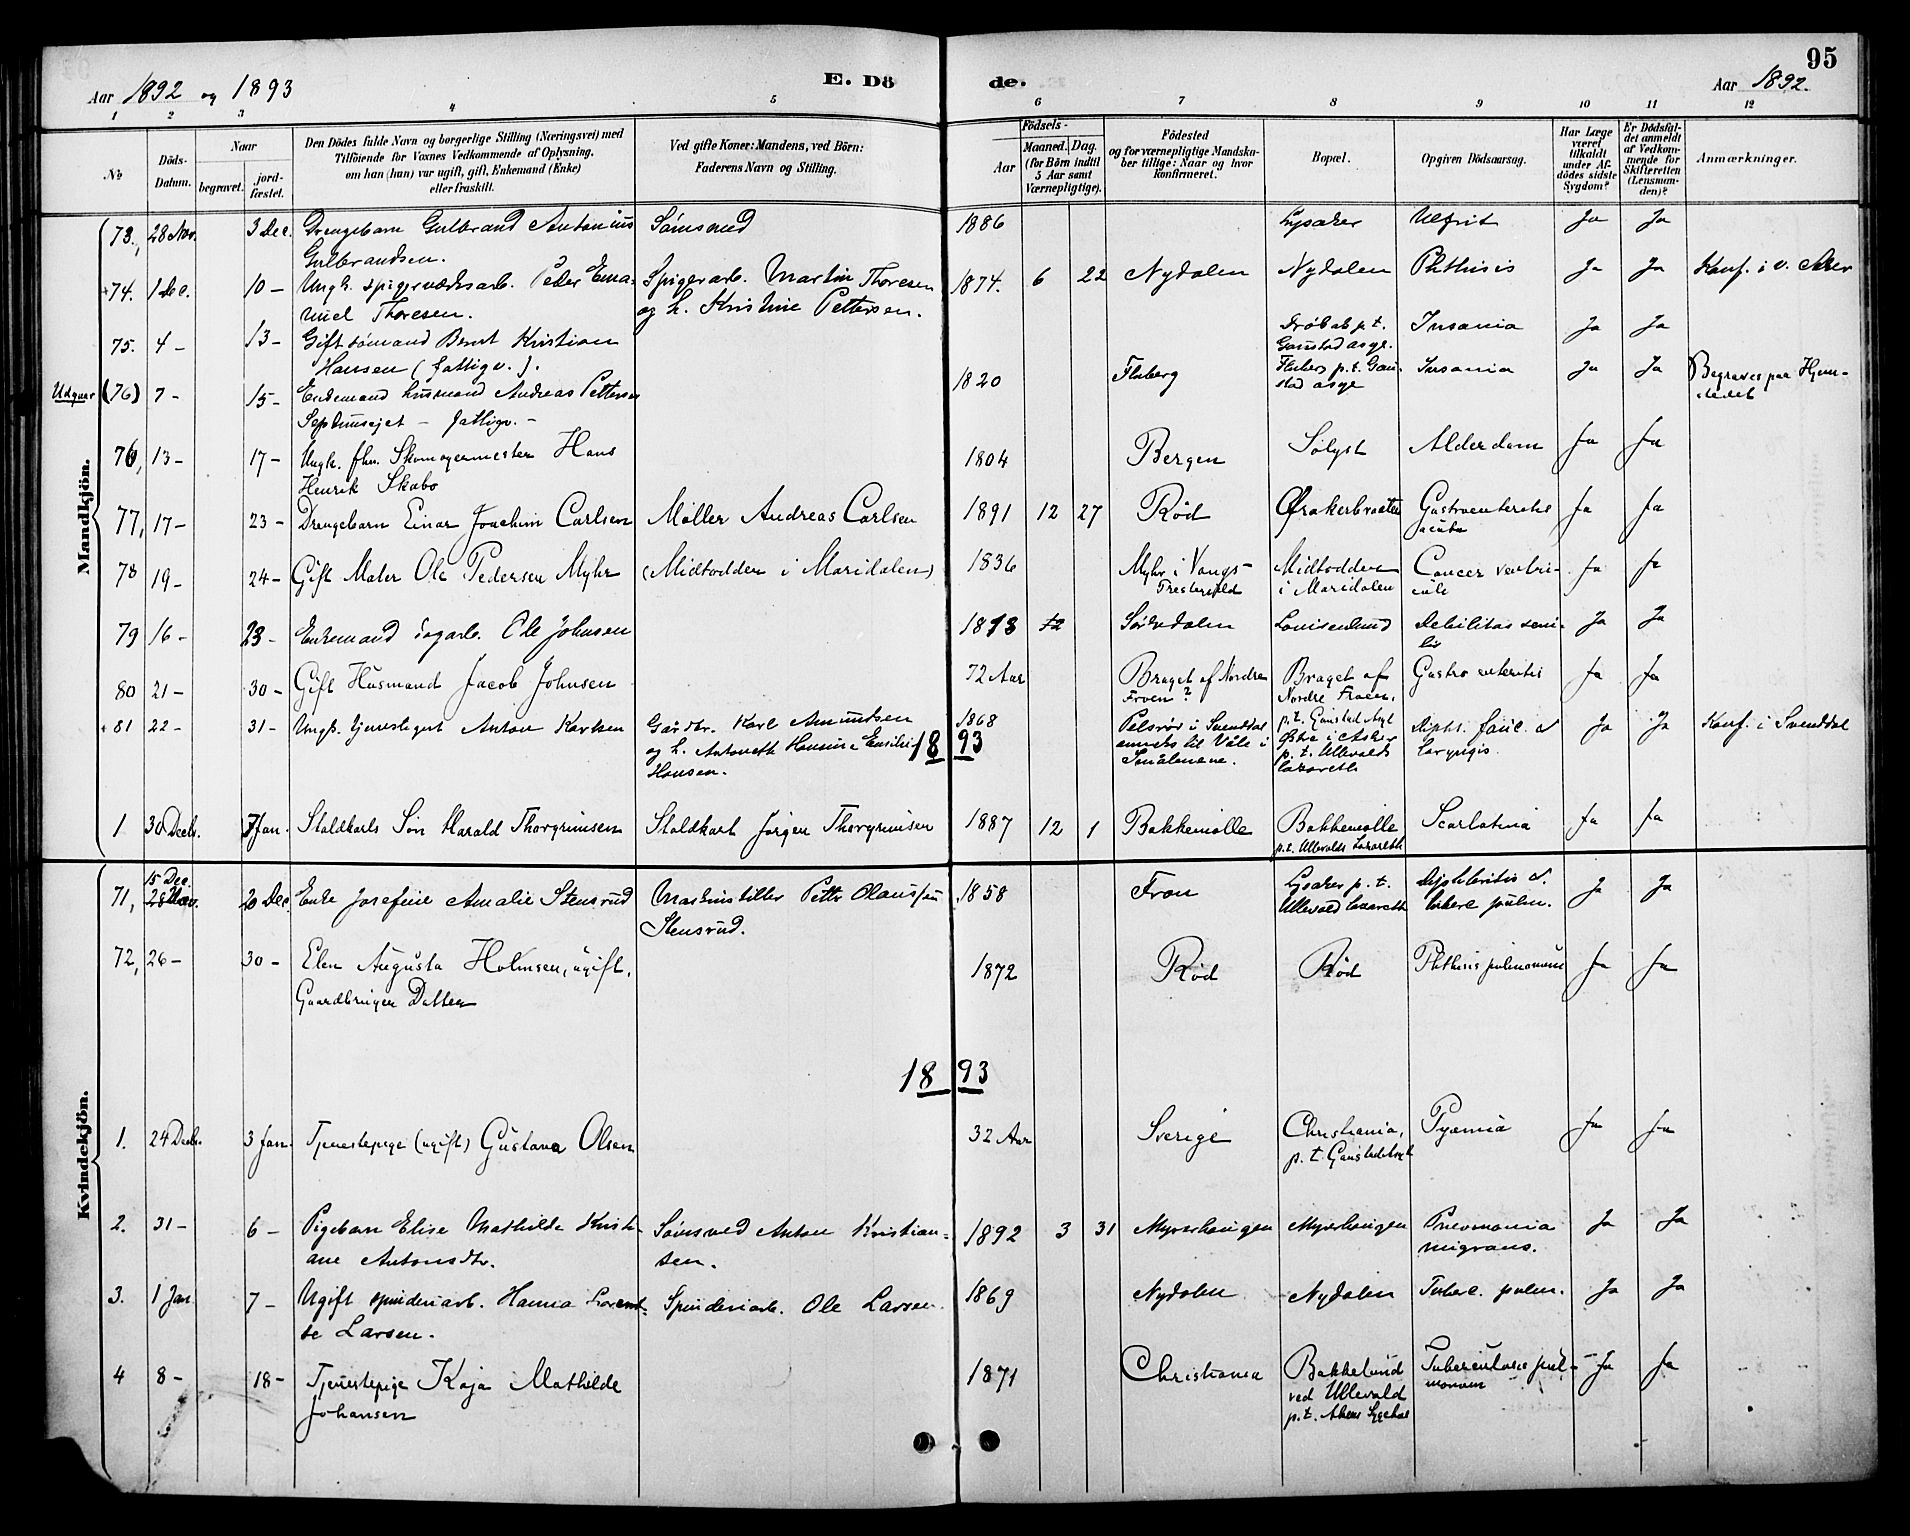 95
Aar 1892 og 1893
E. Dö de.
Aar 1892.
1 2 3 4 5 6 7 8 9 10 11 12
No
Döds-Datum.
Naar
begravet.
jord-fæstet.
Den Dödes fulde Navn og borgerlige Stilling (Næringsvei) med
Tilföiende for Voxnes Vedkommende af Oplysning,
om han (hun) var ugift, gift, Enkemand (Enke)
eller fraskilt.
Ved gifte Koner: Mandens, ved Börn:
Faderens Navn og Stilling.
Födsels-
Aar
Maaned. Dag.
(for Börn indtil
5 Aar samt
Værnepligtige).
Födested
og for værnepligtige Mandska-
ber tillige: Naar og hvor
konfirmeret.
Bopæl.
Opgiven Dödsaarsag.
Har Læge
været
tilkaldt
under Af-
dödes sidste
Sygdom?
Er Dödsfal-
det anmeldt
af Vedkom-
mende for
Skifteretten
(Lensman-
den)?
Anmærkninger.
Mandkjön.
73., 28 Nov. 3 Dec. Drengebarn Gulbrand Antonius Sømand 1886 Lysaker Ja Ja
Gulbrandsen.
74. 1 Dec. 10 – Ungk. spigerværksarb. Peder Ema- Spigerarb. Martin Thoresen 1874. 6 22 Nydalen Nydalen Phthisis Ja Ja Konf. i v. Aker
nuel Thoresen. og h. Kristine Pettersen.
75. 4 – 13 – Gift sømand Bernt Kristian Drøbak p.t. Insania Ja Ja
Hansen (fattigv.). Gaustad asyl.
Udgaar (76) 7 – 15 – Enkemand husmand Andreas Petters 1820 Fluberg Fluberg p.t. Gau- Insania Ja Ja Begraves paa Hjem-
– fattigv. – stad asyl stedet
76, 13 – 17 – Ungk. fhv. Skomagermester Hans 1804 Bergen Sølyst Alderdom Ja Ja
Henrik Skabo
77, 17 – 23 – Drengebarn Einar Joachim Carlsen Møller Andreas Carlsen 1891 12 27 Rød Ørakerbraaten Ja Ja
78 19 – 24 – Gift Maler Ole Pedersen Myhr (Midtodden i Maridalen) 1836 Myhr i Vangs- Midtodden Cancer ventri- Ja Ja
Præstegjeld i Maridalen culi
79 16 – 23 – Enkemand Ole Johnsen 1813 12 Sørkedalen Louisenlund Debilitas seni- Ja Ja
lis
80 21 – 30 – Gift Husmand Jacob Johnsen 72 Aar Braget af Nordre Braget af Gastro enteritis Ja Ja
Froen? Nordre Froen.
81 22 – 31 – Ungk. tjenestegut Anton Karlsen Gårdbr. Karl Amundsen 1868 i Svendal p.t. Gaustad Asyl Dipht. fauc. & Ja Ja Konf. i Svenddal
og h. Antonette Hansine Emilie anneks til Våle i Østre i Asker laryngis.
Hansen. Smålenene. p.t. Ullevolds
Lazareth
1893
1 30 Decb. 7 Jan. Staldkarls Søn Harald Thorgrimsen Staldkarl Jørgen Thorgrimsen 1887 12 1 Bakkemølle Bakkemølle Scarlatina Ja Ja
p.t. Ullevolds Lazareth
Kvindekjön.
15 Dec.
71, 28 Nov. 20 Dec. Enke Josefine Amalie Stensrud Maskinstiller Petter Olaus 1858 Fron Lysaker p.t. Diphteritis & Ja Ja
Stensrud. Ullevold Lazareth tuberc. pulm.
72, 26 – 30 – Elen Augusta Holmsen, ugift, 1872 Rød Rød Phthisis pulmonum Ja Ja
Gaardbruger Datter
1893
1. 24 Decb. 3 Jan. Tjenestepige (ugift) Gustava Olsen 32 Aar Sverige Christiania, Pyæmia Ja Ja
p.t. Gaustad Asyl
2. 31 – 6 – Pigebarn Elise Mathilde Kristi- Anton Kristian- 1892 3 31 Myrerhaugen Myrerhaugen Pneumonia Ja Ja
ane Antonsdtr. sen. migrans.
3. 1 Jan. 7 – Ugift spinderiarb. Hanna Lorent- Spinderiarb. Ole Larsen. 1869 Nydalen Nydalen Tuberc. pulm. Ja Ja
se Larsen.
4 8 – 18 – Tjenestepige Kaja Mathilde 1871 Christiania Bakkelund Tuberculosis pul- Ja Ja
Johansen ved Ullevold monum
p.t. Akers Sygehus